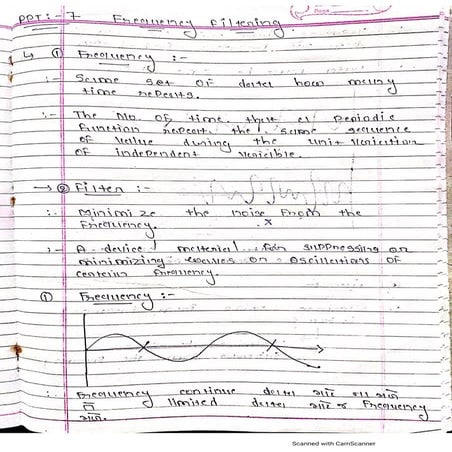 PPT:- 7 Frequency Filtering.
① Frequency :-
:- Same set of data how many
time repeats.
:- The No. of time that a periodic
function repeats the same sequence
of value during the unit variation
of independent variable.
→ ② Filter :-
:- Minimize the noise from the
Frequency.
:- A device / material for suppressing or
minimizing waves or oscillations of
certain frequency.
① Frequency :-
:- Frequency continue data
limited data Frequency
Scanned with CamScanner